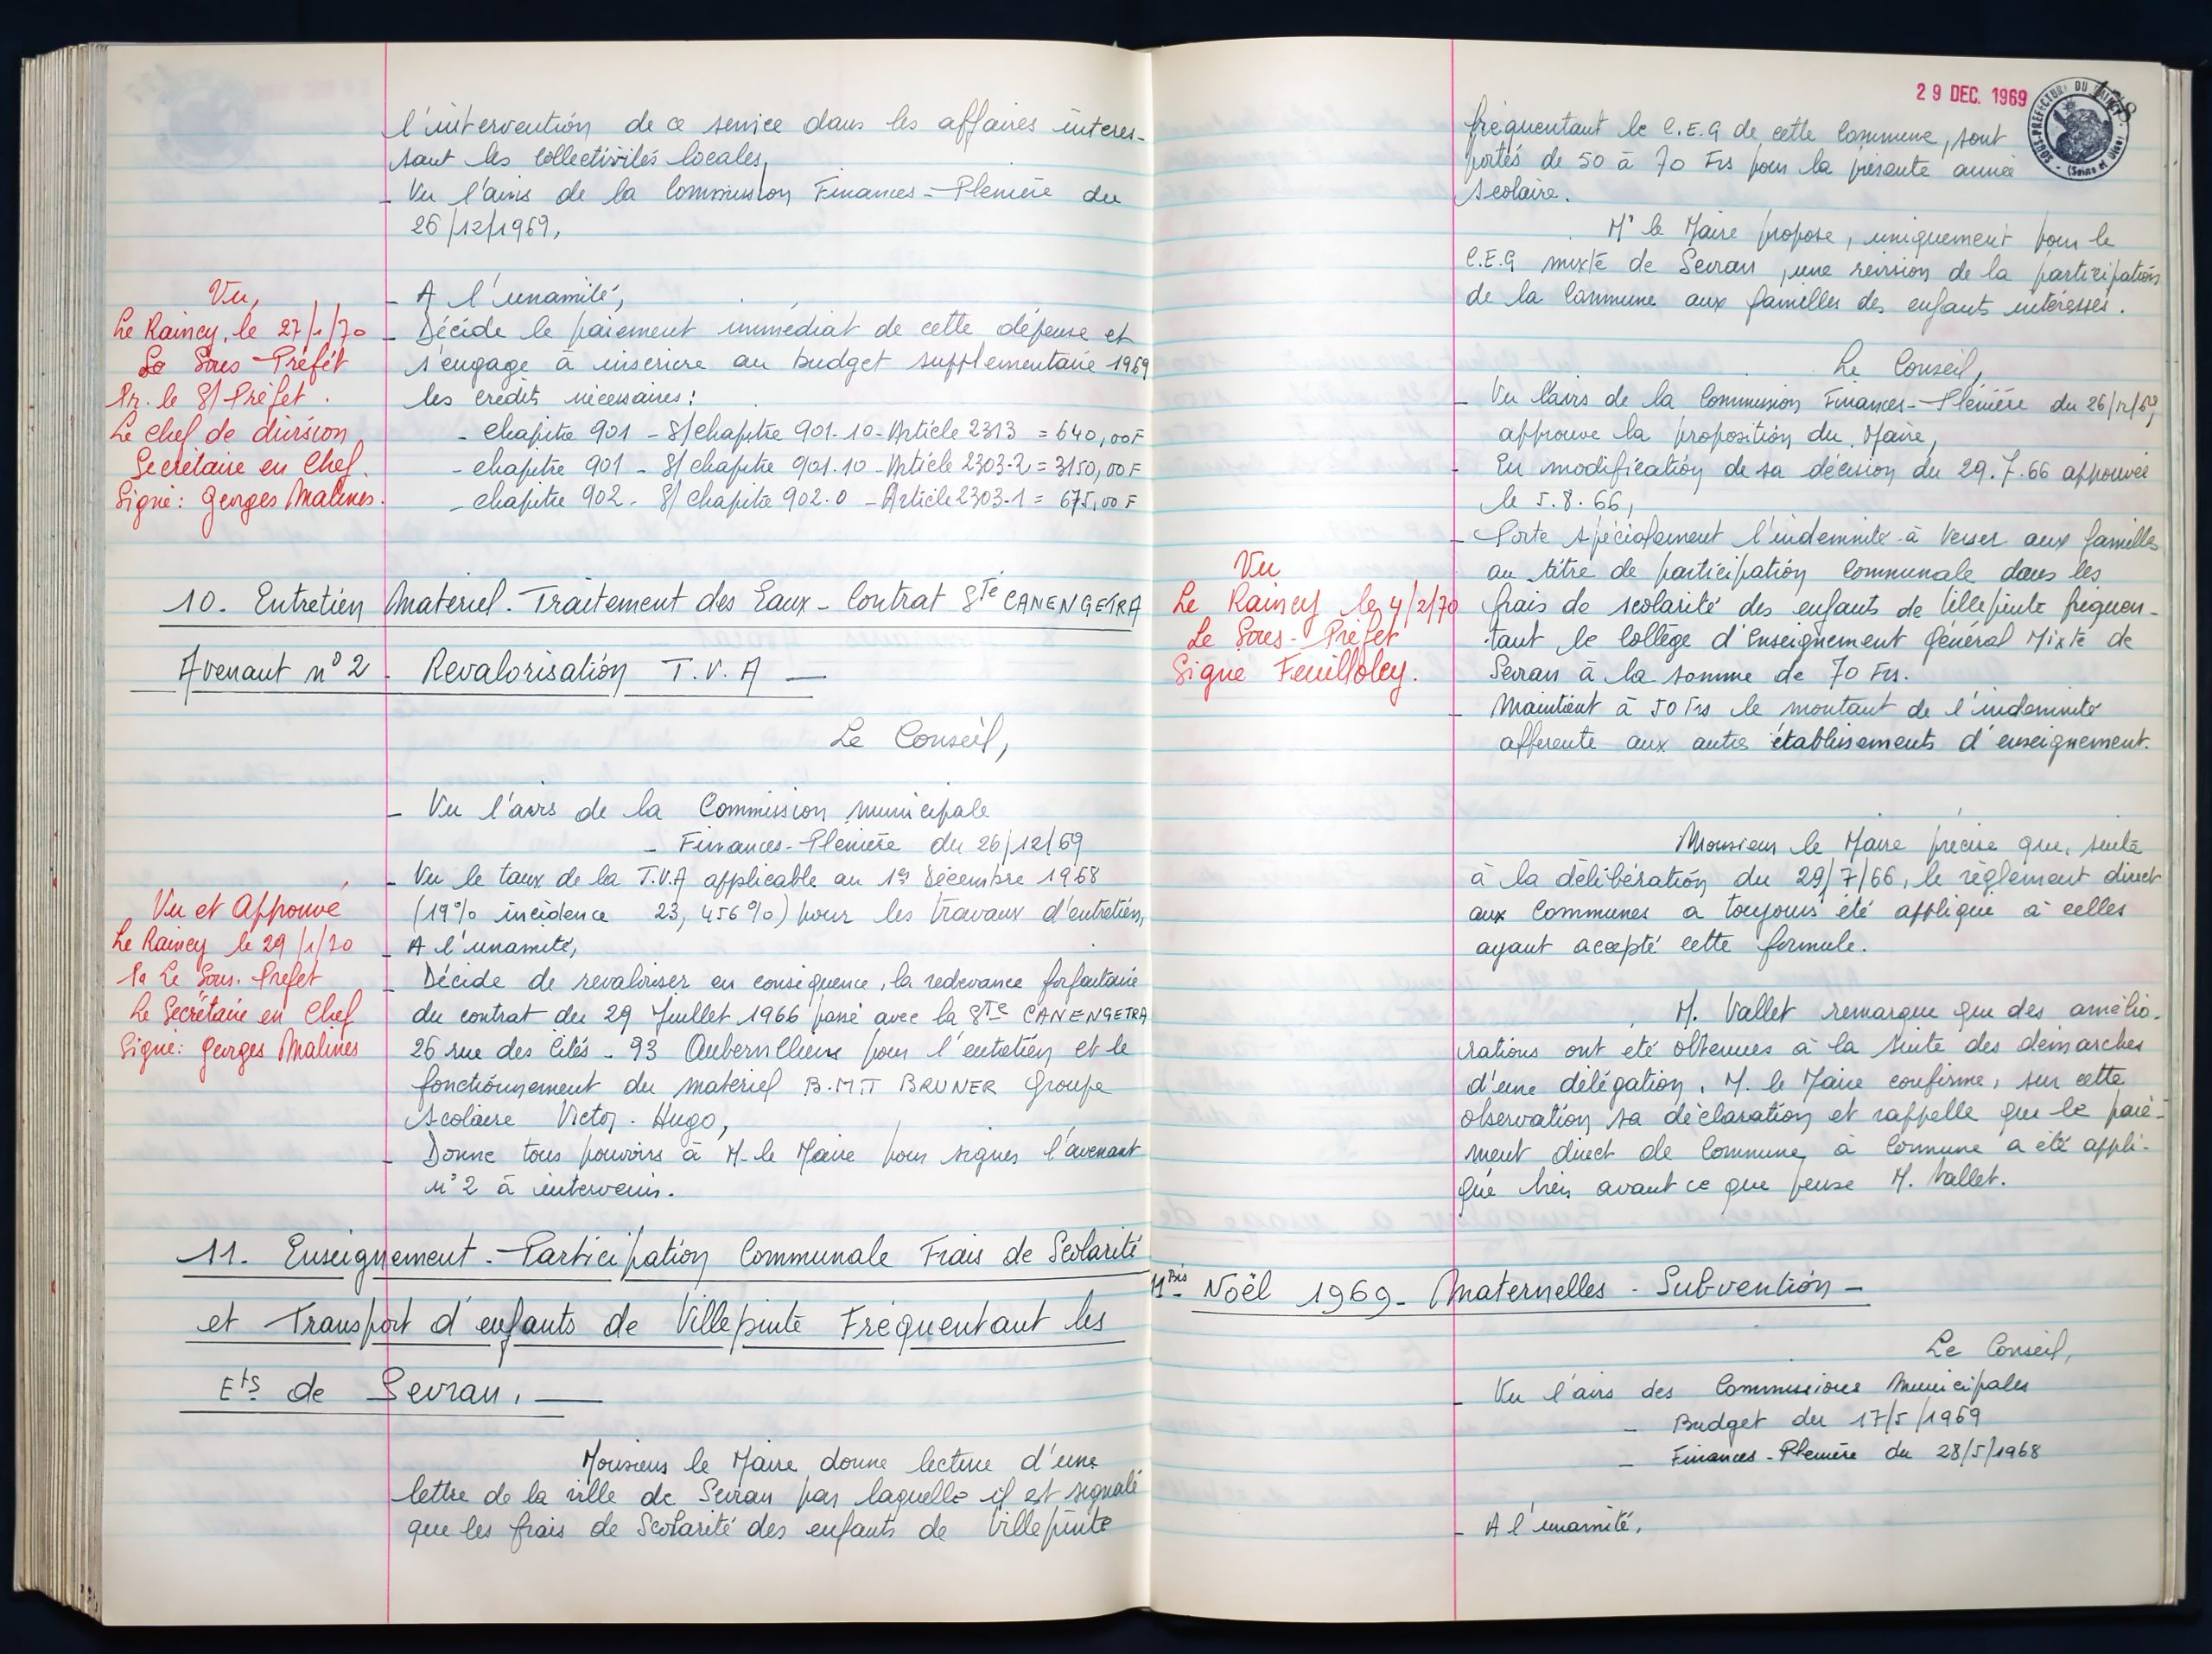 l'intervention de ce service dans les affaires intéres-
sant les collectivités locales,
- Vu l'avis de la Commission Finances - Plénière du
26/12/1969,
- A l'unamité,
- Décide le paiement immédiat de cette dépense et
s'engage à inscrire au budget supplémentaire 1969
les crédits nécessaires :
- chapitre 901 - S/chapitre 901.10 - Article 2313 = 640,00 F
- chapitre 901 - S/ chapitre 901.10 - Article 2303-2 = 3150,00 F
- chapitre 902 - S/ chapitre 902.0 - Article 2303-1 = 675,00 F
Vu,
Le Raincy, le 27/1/70
Le Sous-Préfet
Pr. le S/Préfet.
Le Chef de division
Secrétaire en Chef.
Signé : Georges Malines.
10. Entretien Matériel - Traitement des Eaux - Contrat Sté CANENGETRA
Avenant n° 2 - Revalorisation T.V.A -
Le Conseil,
- Vu l'avis de la Commission Municipale
- Finances - Plénière du 26/12/69
- Vu le taux de la T.V.A applicable au 1er Décembre 1968
(19% incidence 23,456%) pour les travaux d'entretien,
- A l'unamité,
- Décide de revaloriser en conséquence, la redevance forfaitaire
du contrat du 29 Juillet 1966 passé avec la Sté CANENGETRA
26 rue des Cités - 93 Aubervilliers pour l'entretien et le
fonctionnement du matériel B.M.T BRUNER Groupe
Scolaire Victor-Hugo,
- Donne tous pouvoirs à M. le Maire pour signer l'avenant
n° 2 à intervenir.
Vu et Approuvé
Le Raincy le 29/1/70
Pr Le Sous-Préfet
Le Secrétaire en Chef
Signé : Georges Malines
11. Enseignement - Participation Communale Frais de Scolarité
et Transport d'enfants de Villepinte Fréquentant les
Ets de Sevran. -
Monsieur le Maire donne lecture d'une
lettre de la ville de Sevran par laquelle il est signalé
que les frais de Scolarité des enfants de Villepinte
29 DEC. 1969
SOUS-PRÉFECTURE DU RAINCY
fréquentant le C.E.G de cette Commune, sont
portés de 50 à 70 Frs pour la présente année
scolaire.
Mr le Maire propose, uniquement pour le
C.E.G mixte de Sevran, une révision de la participation
de la Commune aux familles des enfants intéressés.
Le Conseil,
- Vu l'avis de la Commission Finances - Plénière du 26/12/69,
approuve la proposition du Maire,
- En modification de sa décision du 29.7.66 approuvée
le 5.8.66,
- Porte spécialement l'indemnité à verser aux familles
au titre de participation Communale dans les
frais de scolarité des enfants de Villepinte fréquen-
tant le Collège d'Enseignement Général Mixte de
Sevran à la somme de 70 Frs.
- Maintient à 50 Frs le montant de l'indemnité
afférente aux autres établissements d'enseignement.
Vu
Le Raincy le 4/2/70
Le Sous-Préfet
Signé Feuilloley.
Monsieur le Maire précise que, suite
à la délibération du 29/7/66, le règlement direct
aux Communes a toujours été appliqué à celles
ayant accepté cette formule.
M. Vallet remarque que des amélio-
rations ont été obtenues à la suite des démarches
d'une délégation. M. le Maire confirme, sur cette
observation sa déclaration et rappelle que le paie-
ment direct de Commune à Commune a été appli-
qué bien avant ce que pense M. Vallet.
11Bis Noël 1969 - Maternelles - Subvention -
Le Conseil,
- Vu l'avis des Commissions Municipales
- Budget du 17/5/1969
- Finances - Plénière du 28/5/1968
- A l'unamité,